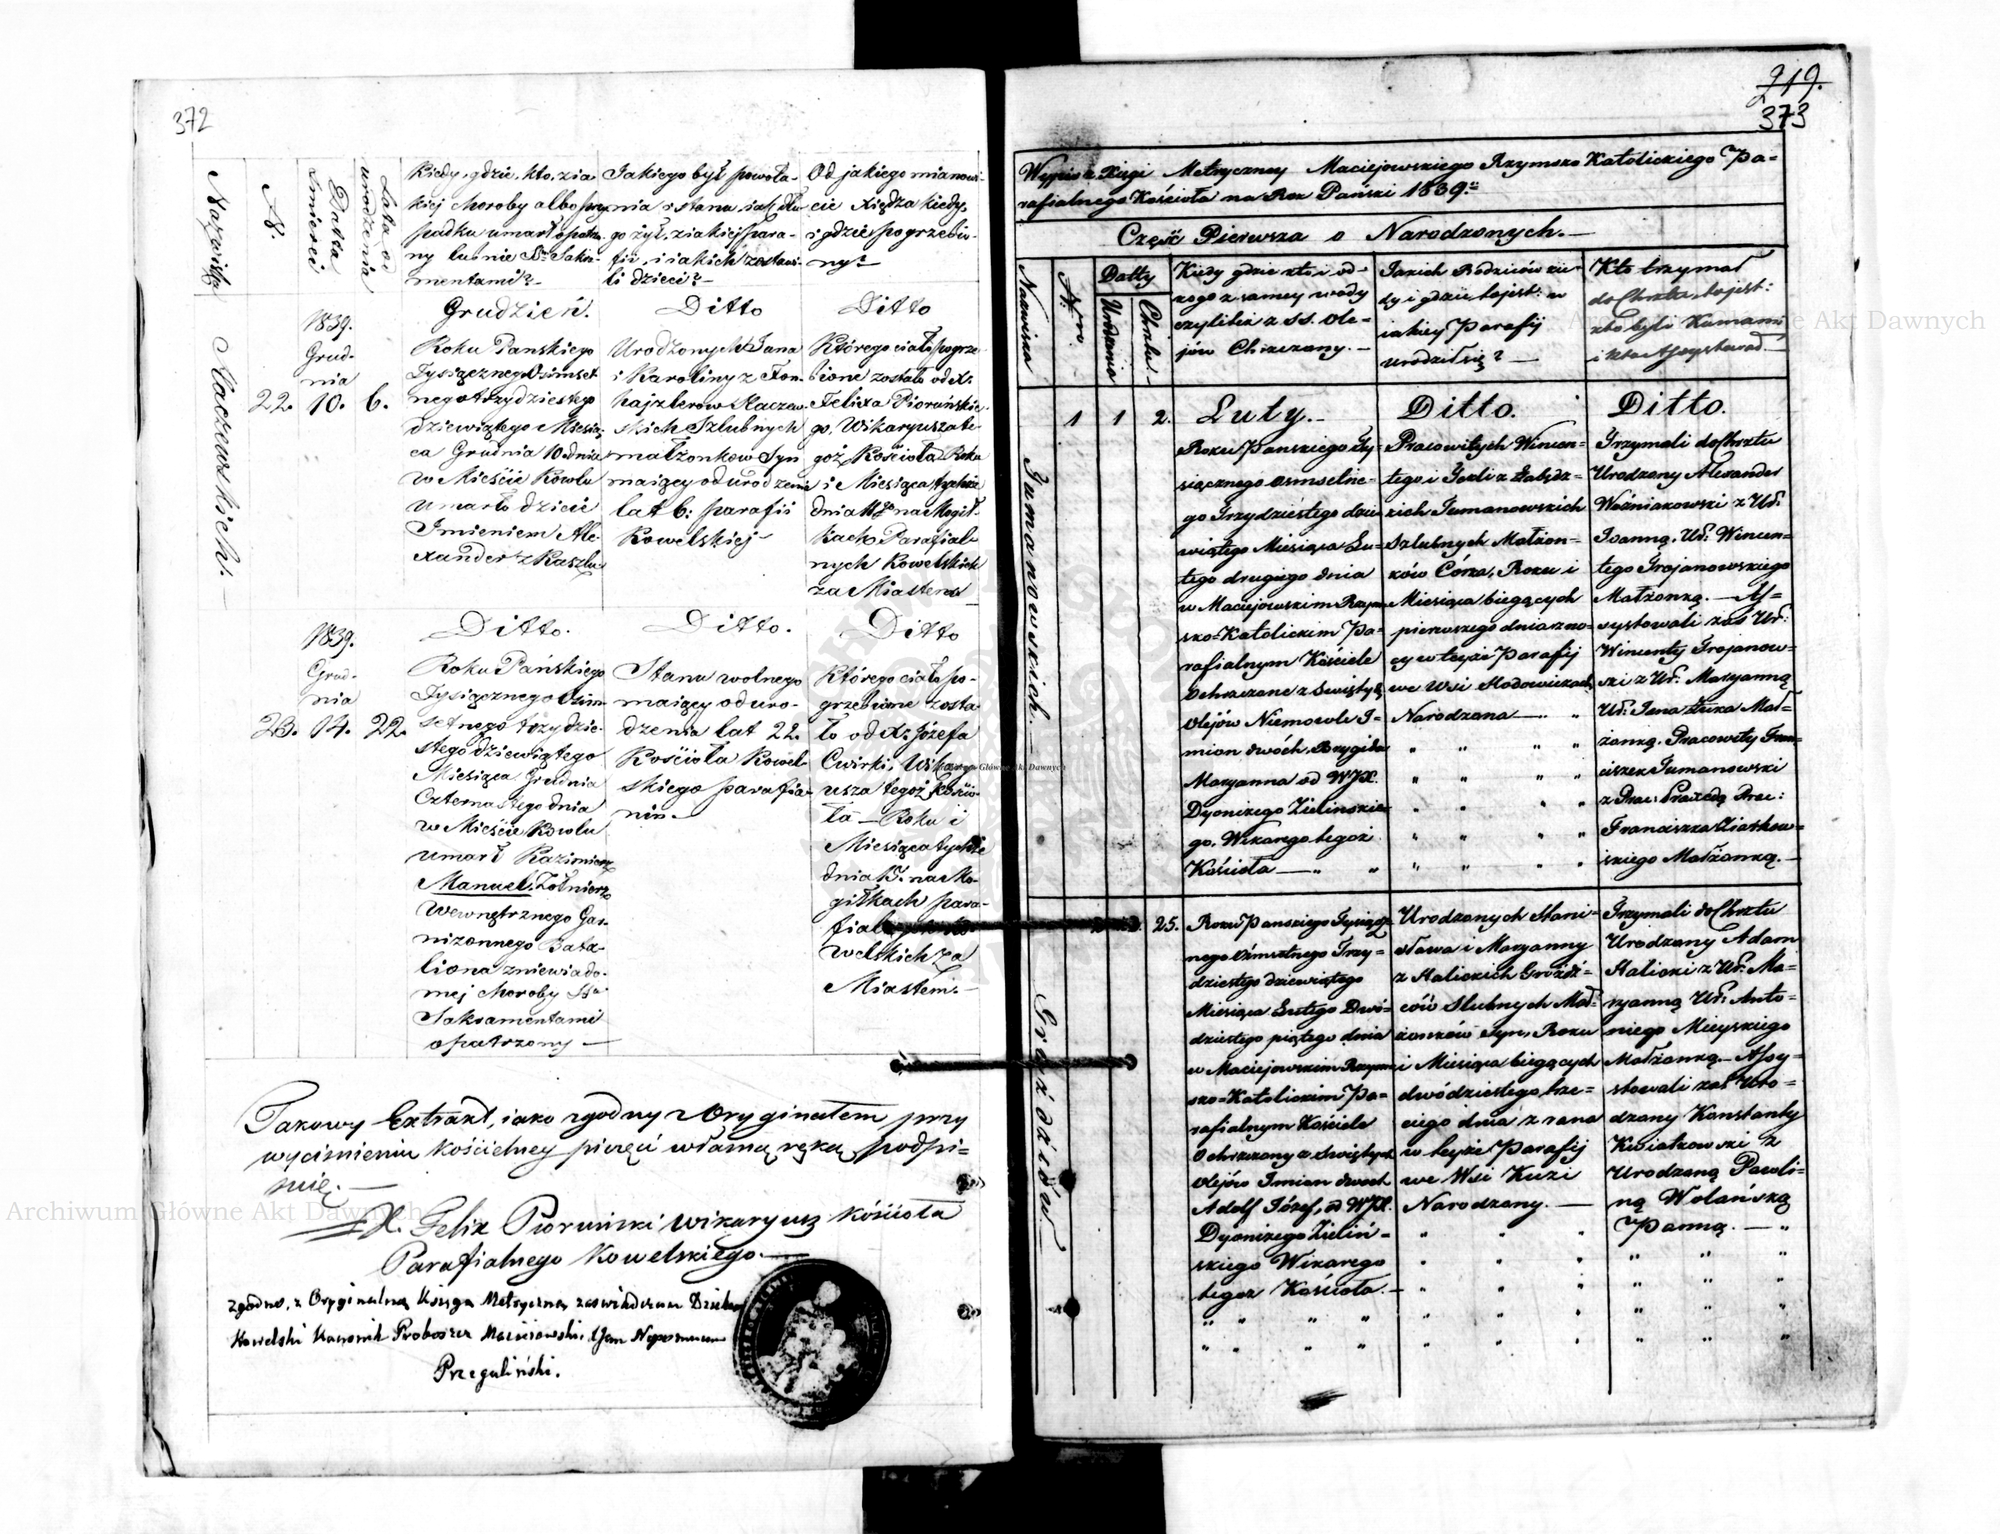 372
Nazwiska
N.
Datta śmierci
Lata od urodzenia
Kiedy, gdzie, kto, z ja-
kiej choroby albo przy-
padku umarł opatrzo-
ny lub nie SS. Sakra-
mentami?
Jakiego był powoła-
nia i stanu, jak dłu-
go żył, z jakiej para-
fii, i jakich zostawi-
ł dzieci?
Od jakiego mianowi-
cie Xiędza kiedy,
i gdzie pogrzebio-
ny?
Kaczewskich.
22.
1839.
Grud-
nia
10.
6.
Grudzień.
Roku Panskiego
Tysiącznego Osimset
nego trzydziestego
dziewiątego Miesią-
ca Grudnia 10 dnia
w Mieście Kowlu
umarło dziecie
Imieniem Ale-
xander z Kaszlu
Ditto
Urodzonych Jana
i Karoliny z
Szlubnych
małżonków Syn
maiący od urodzenia
lat 6: parafii
Kowelskiej
Ditto
Którego ciało pogrze-
bione zostało od X.
Felixa Pioruńskie-
go, Wikaryusza te-
goż Kościoła Roku
i Miesiąca tychże
dnia na Mogił-
kach Parafial-
nych Kowelskich
za Miastem
23.
1839.
Grud-
nia
14.
22.
Ditto.
Roku Pańskiego
Tysiącznego Osim-
setnego trzydzie-
stego dziewiątego
Miesiąca Grudnia
Czternastego dnia
w Mieście Kowlu
umarł Kazimierz
Manuel, Żołnierz
Wewnętrznego Gar-
nizonnego Bata-
liona z niewiado-
mej choroby SS.
Sakramentami
opatrzony
Ditto.
Stanu wolnego
maiący od uro-
dzenia lat 22.
Kościoła Kowel-
skiego parafia-
nin.
Ditto
Którego ciało po-
grzebione zosta-
ło od X. Józefa
Cwirki, Wikary-
usza tegoż Kościo-
ła Roku i
Miesiąca tychże
dnia 15. na Mo-
giłkach para-
fialnych Ko-
welskich za
Miastem.
Takowy Extrakt, jako zgodny z Oryginałem przy
wyciśnieniu kościelney pieczęci własną ręką podpi-
suię.
X. Felix Pioruński Wikaryusz Kościoła
Parafialnego Kowelskiego.
Zgodno, z Oryginalną Księgą Metryczną zaświadczam Dziekan
Kowelski Kanonik Proboszcz Maciejowski. X Jan Nepomucen
Przegaliński.
219.
373
Wypis z Xięgi Metryczney Maciejowskiego Rzymsko Katolickiego Pa-
rafialnego Kościoła na Rok Pański 1839.
Część Pierwsza o Narodzonych.
Nazwiska
Nro
Datty
Urodzenia
Chrztu
Kiedy gdzie kto i od
kogo z samey wody
czyli też z SS. Ole-
jów Chrzczony.
Jakich Rodziców kie-
dy i gdzie tojest: w
jakiey Parafij
urodził się?
Kto trzymał
do Chrztu, tojest:
kto byli Kumami
i kto Assystował.
Jumanowskich.
1
1
2.
Luty.
Roku Panskiego Ty-
siącznego osmsetne-
go Trzydziestego dzie-
wiątego Miesiąca Lu-
tego drugiego dnia
w Maciejowskim Rzym-
sko-Katolickim Pa-
rafialnym Kościele
Ochrzczone z świętych
Olejów Niemowle I-
mion dwóch Brygida
Maryanna od WJX.
Dyonizego Zielinskie-
go, Wikarego tegoż
Kościoła
Ditto.
Pracowitych Wincen-
tego i Tekli z Łabędz-
kich Jumanowskich
Szlubnych Małżon-
ków Córka, Roku i
Miesiąca bieżących
pierwszego dnia z no-
cy w teyże Parafij
we Wsi
Narodzona
Ditto.
Trzymali do Chrztu
Urodzony Alexander
Woźniakowski z Ur:
Joanną, Ur: Wincen-
tego Trojanowskiego
Małżonką. As-
systowali zaś Ur:
Wincenty Trojanow-
ski z Ur: Maryanną
Ur: Jana Żuka Mał-
żonką. Pracowity Fran-
ciszek Jumanowski
z Prac: Praxedą Prac:
Franciszka Ziatkow-
skiego Małżonką.
Groździów
25.
Roku Panskiego Tysiącz-
nego Osmsetnego Trzy-
dziestego dziewiątego
Miesiąca Lutego Dwó-
dziestego piątego dnia
w Maciejowskim Rzym-
sko-Katolickim Pa-
rafialnym Kościele
Ochrzczony z świętych
Olejów Imion dwoch
Adolf Józef, od WJX.
Dyonizego Zieliń-
skiego Wikarego
tegoż Kościoła.
Urodzonych Stani-
sława i Maryanny
z Halickich Groźdź-
ców Slubnych Mał-
żonków Syn, Roku
i Miesiąca bieżących
dwódziestego trze-
ciego dnia z rana
w teyże Parafij
we Wsi Kuzi
Narodzony.
Trzymali do Chrztu
Urodzony Adam
Halicki z Ur: Ma-
ryanną Ur: Anto-
niego Mieyskiego
Małżonką. Assy-
stowali zaś Uro-
dzony Konstanty
Kwiatkowski z
Urodzoną Pauli-
ną Wolańską
Panną.
Archiwum Główne Akt Dawnych
Archiwum Główne Akt Dawnych